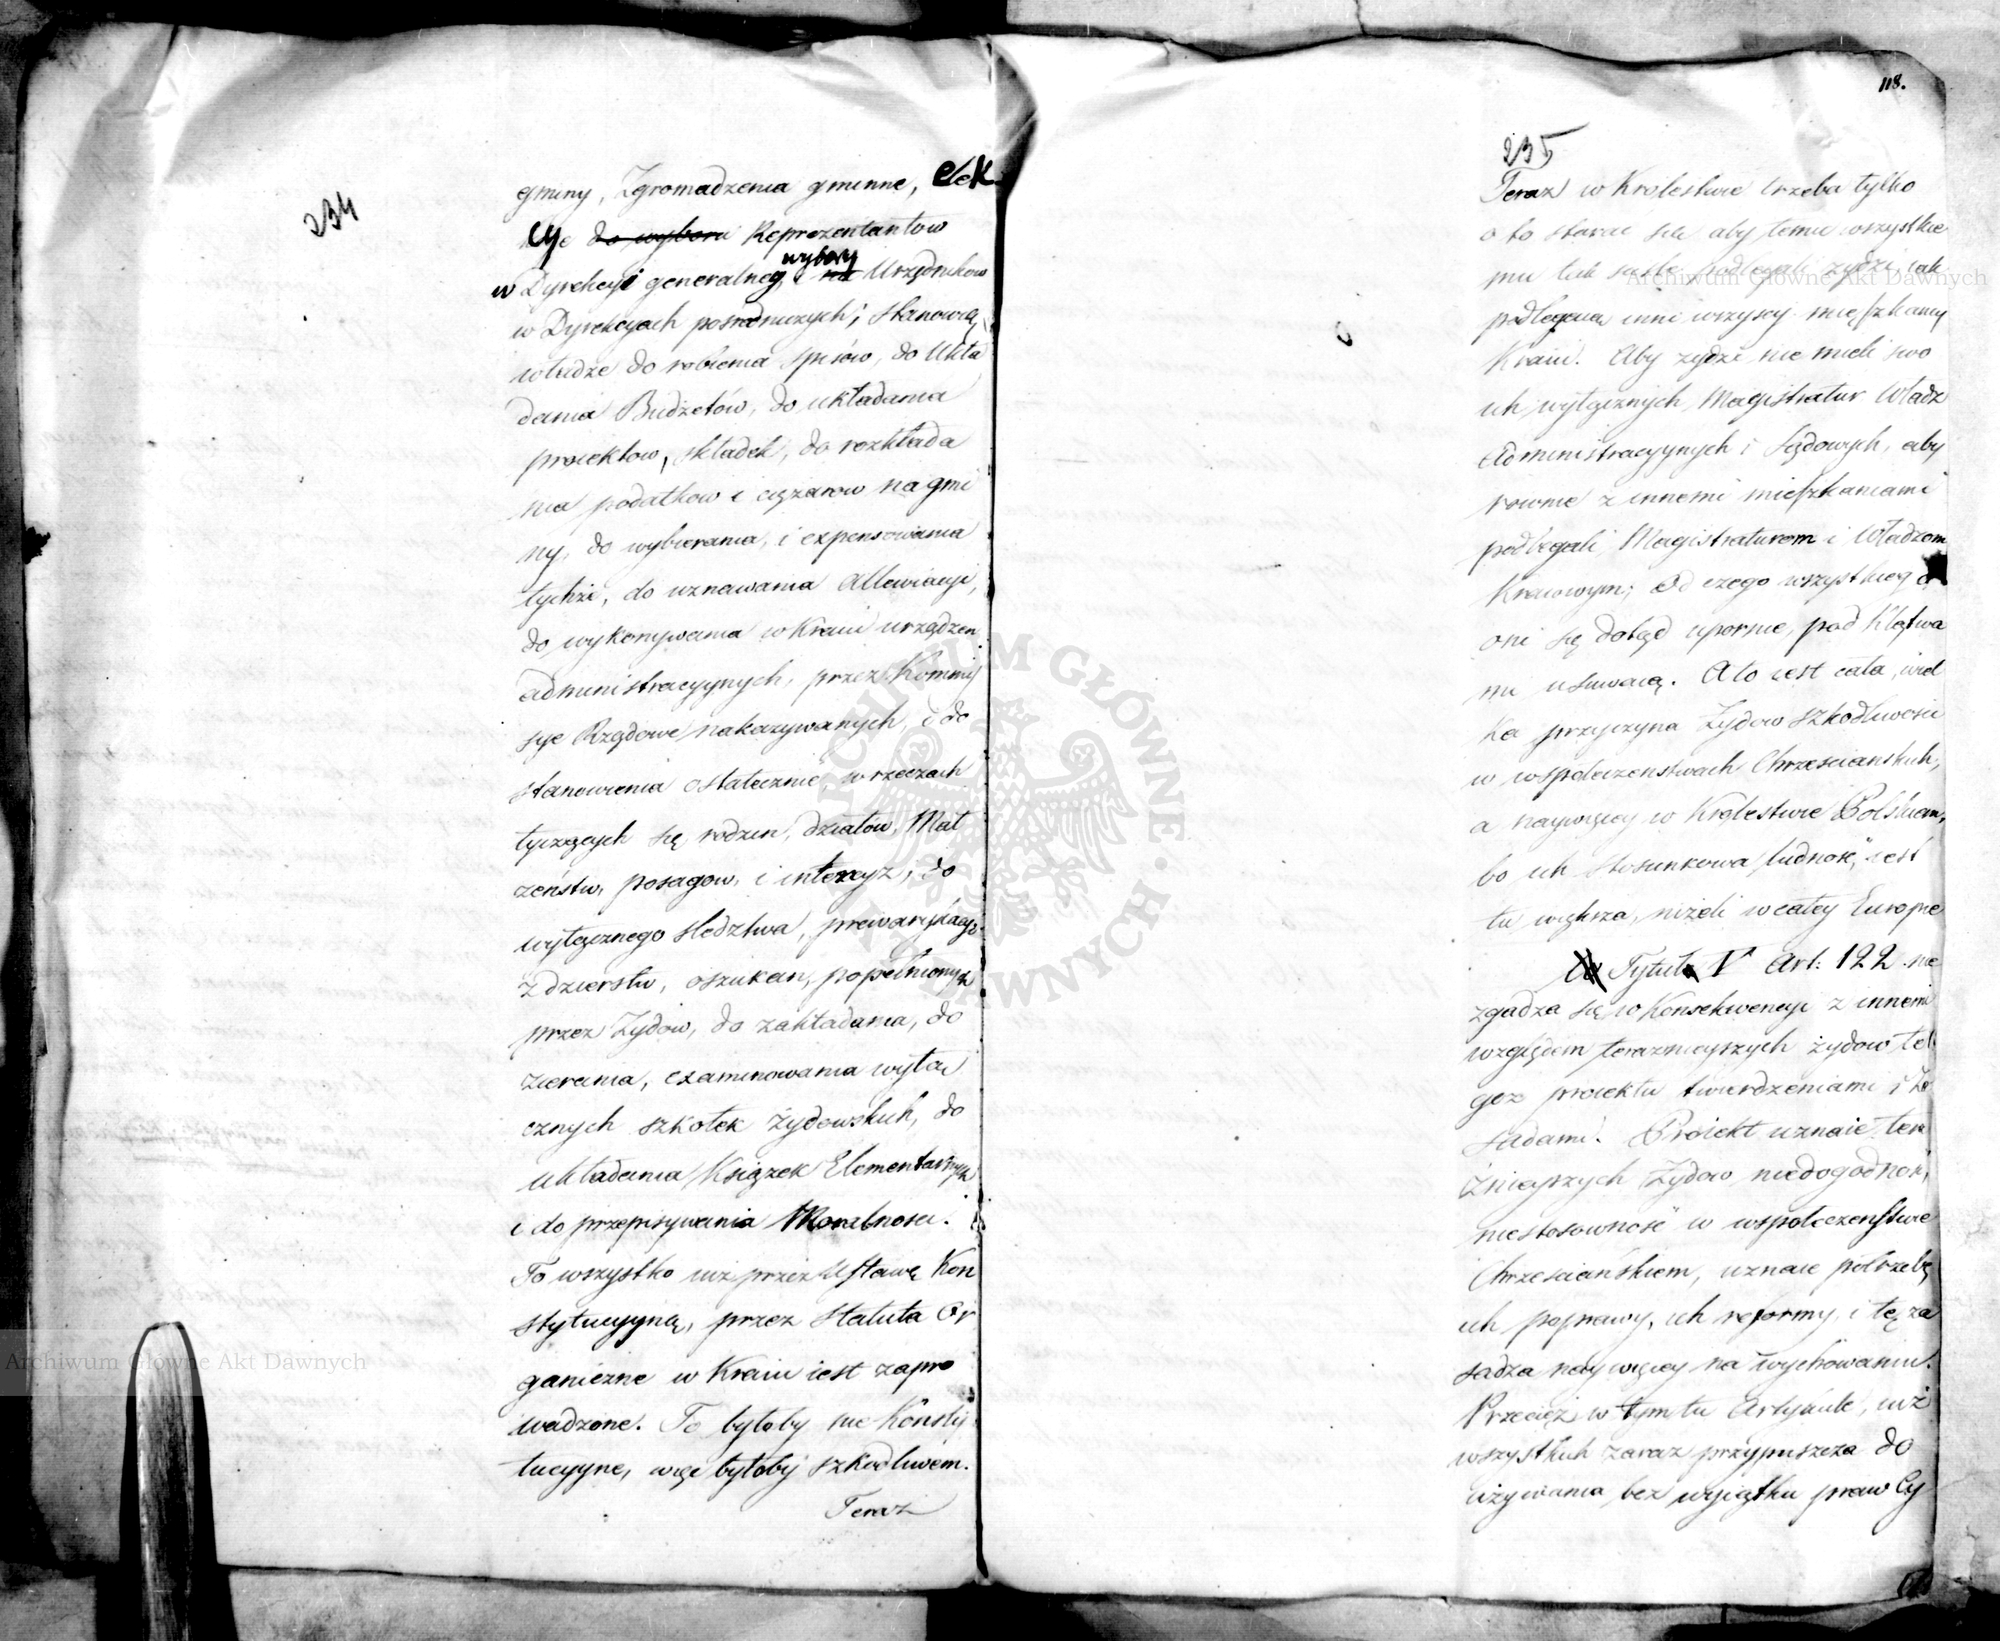 234
gminy, Zgromadzenia gminne, elek
cye do wyboru Reprezentantow
wybory
w Dyrekcyi generalney, i na Urzędnikow
w Dyrekcyach posredniczych; stanowią
władze do robienia spisów, do Ukła
dania Budżetów, do układania
proiektow, składek, do rozkłada
nia podatkow i cięzarow na gmi
ny, do wybierania, i expensowania
tychże, do uznawania Allewiacyi,
do wykonywania w Kraiu urządzen
administracyynych, przez Kommis
sye Rządowe nakazywanych, i do
stanowienia ostatecznie, w rzeczach
tyczących się rodzin, działow, Mał
żeństw, posagow, i intercyz; do
wyłącznego sledztwa, prewarykacyi
Zdzierstw, oszukan, popełnionych
przez Zydow, do zakładania, do
zierania, examinowania wyłą
cznych szkołek żydowskich, do
układania Książek Elementarnych
i do przepisywania Moralnosci.
To wszystko iuż przez Ustawę Kon
stytucyyną, przez Statuta Or
ganiczne w Kraiu iest zapro
wadzone. To byłoby nie Konsty
tucyyne, więc byłoby szkodliwem.
Teraz
118.
235
Teraz w Krolestwie trzeba tylko
o to starac się aby temu wszystkie
mu tak scisle podlegali żydzi iak
podlegaią inni wszyscy mięszkancy
Kraiu. Aby żydzi nie mieli swo
ich wyłącznych Magistratur Władz
Administracyynych i Sądowych, aby
rownie z innemi mieszkancami
podlegali Magistraturom i Władzom
Kraiowym; Od czego wszystkiego
oni się dotąd upornie, pod Klątwa
mi usuwaią. A to iest cała, wiel
ka przyczyna Zydow szkodliwosci
w wspołeczenstwach Chrzescianskich,
a naywięcey w Królestwie Polskiem,
bo ich stosunkowa ludność, iest
tu większa, niżeli w całey Europie
Tytuł V Art: 122. nie
zgadza się w Konsekwencyi z innemi
względem teraznieyszych żydow te
goż proiektu twierdzeniami i Za
sadami. Proiekt uznaie tera
źnieyszych Zydow niedogodnosć,
niestosownosć w wspołeczenstwie
Chrzesciańskiem, uznaie potrzebę
ich poprawy, ich reformy, i tę za
sadza naywięcey na wychowaniu.
Przecięż w tym tu Artykule, iuż
wszystkich zaraz przypuszcza do
używania bez wyiątku praw Cy